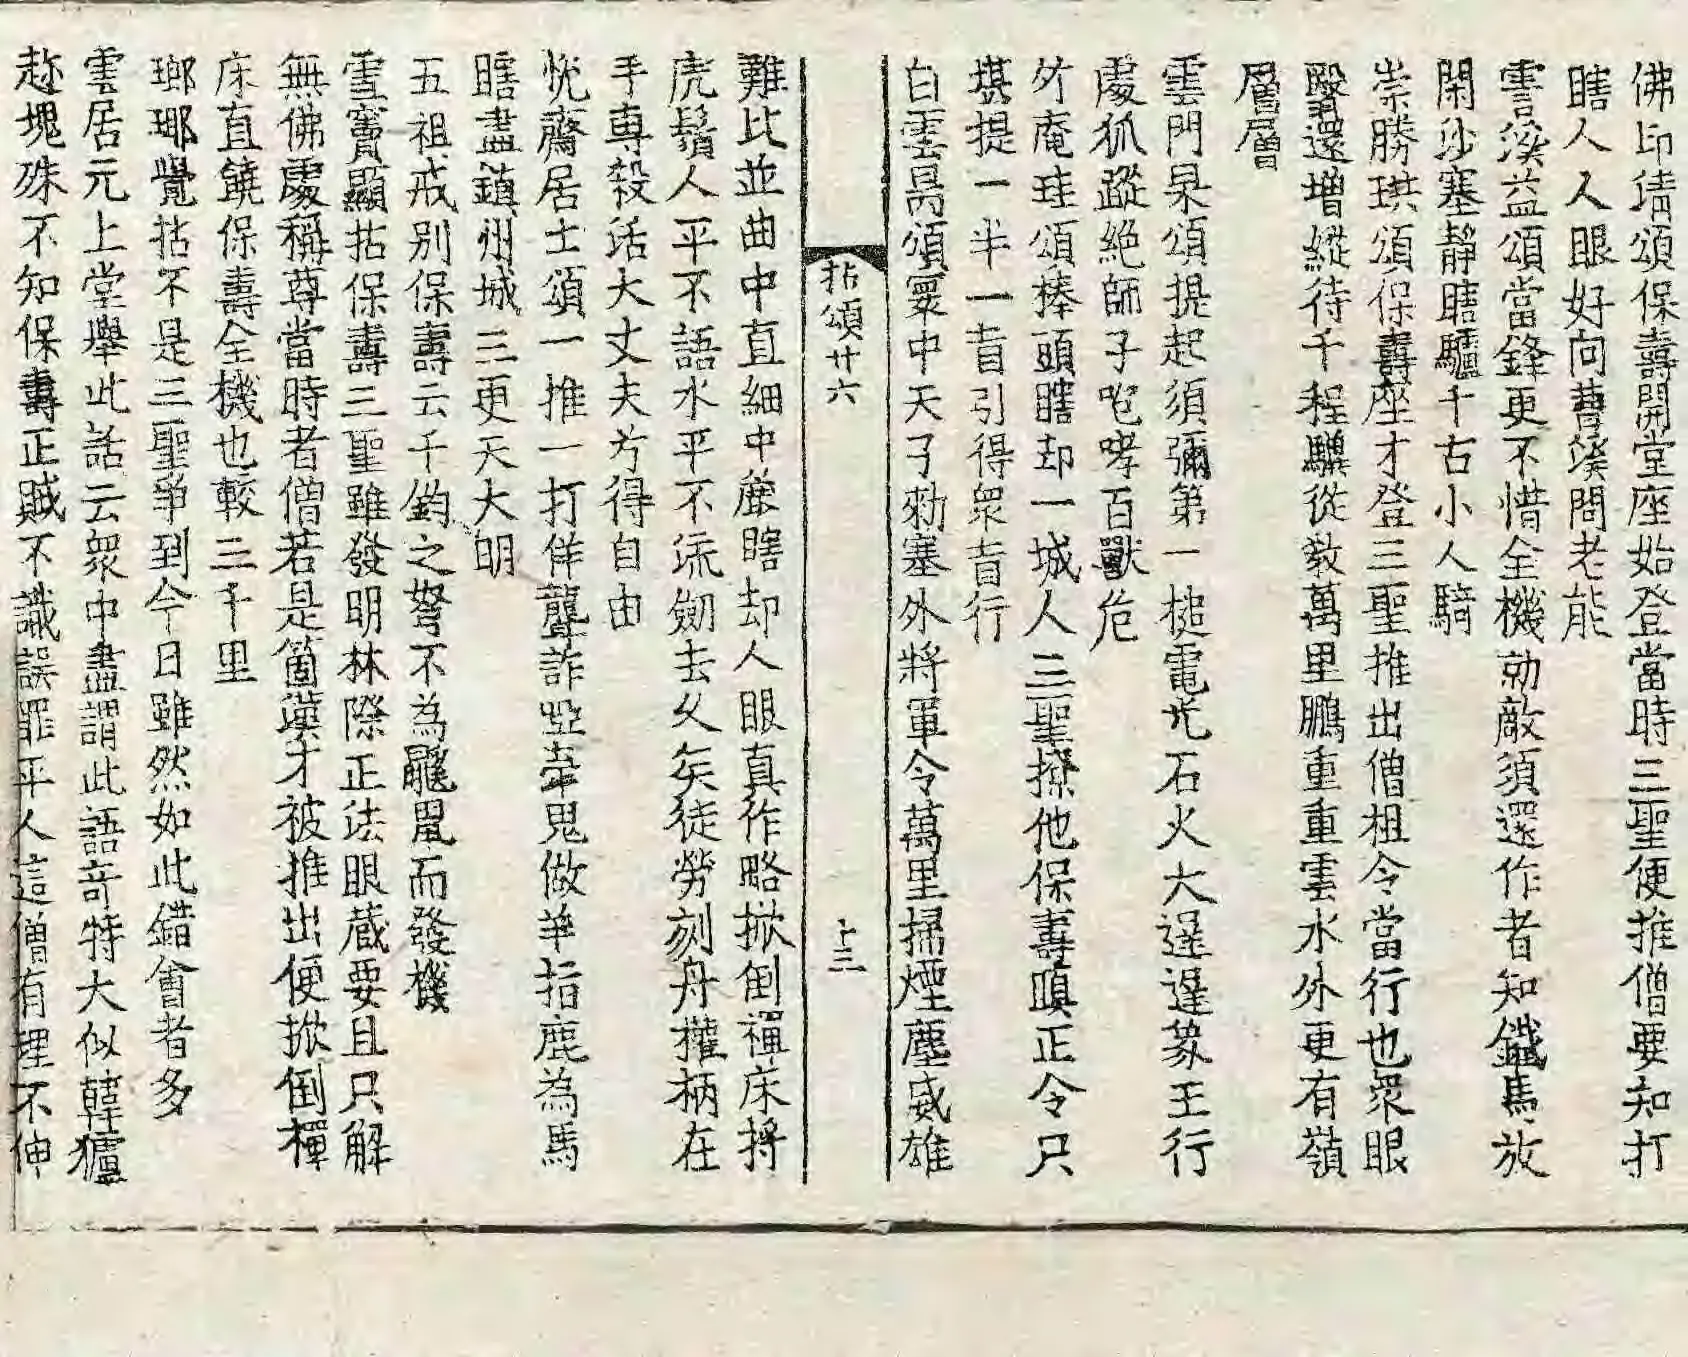 佛印淸頌保壽開堂座始登當時三聖便推僧要知打
瞎人人眼好向曹溪問老能
雲溪益頌當鋒更不惜全機勍敵須還作者知鐵馬放
閑沙塞靜瞎驢千古小人騎
崇勝珙頌保壽座才登三聖推出僧祖令當行也衆眼
翳還增縱待千程驥從敎萬里鵬重重雲水外更有嶺
層層
雲門杲頌提起須彌第一槌電光石火大遲遲象王行
處狐蹤絕師子咆哮百獸危
竹庵珪頌棒頭瞎却一城人三聖撩他保壽嗔正令只
堪提一半一盲引得衆盲行
白雲昺頌寰中天子勑塞外將軍令萬里掃煙塵威雄
拈頌廿六
十三
難比並曲中直細中麁瞎却人眼眞作略掀倒禪床捋
虎鬚人平不語水平不流劒去久矣徒勞刻舟攉柄在
手專殺活大丈夫方得自由
悅齋居士頌一推一打佯聾詐啞牽鬼做羊指鹿為馬
瞎盡鎭州城三更天大明
五祖戒別保壽云千鈞之弩不為鼷鼠而發機
雪竇顯拈保壽三聖雖發明林際正法眼蔵要且只解
無佛處稱尊當時者僧若是箇漢才被推出便掀倒禪
床直饒保壽全機也較三千里
瑯瑘覺拈不是三聖爭到今日雖然如此錯會者多
雲居元上堂擧此話云衆中盡謂此語竒特大似韓獹
趂塊殊不知保壽正賊不識誤罪平人這僧有理不伸